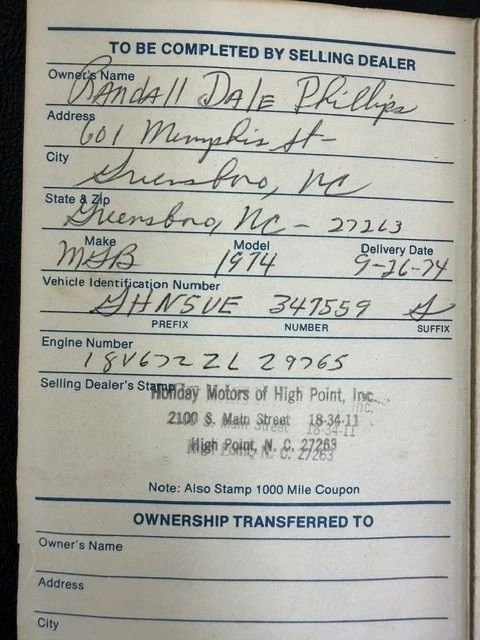 TO BE COMPLETED BY SELLING DEALER
Owner's Name
Randall Dale Phillips
Address
601 Memphis St-
City
Greensboro, NC
State & Zip
Greensboro, NC - 27263
Make Model Delivery Date
MGB 1974 9-26-74
Vehicle Identification Number
GHN5UE 347559 G
PREFIX NUMBER SUFFIX
Engine Number
18V672 ZL 29765
Selling Dealer's Stamp
Holiday Motors of High Point, Inc.
2100 S. Main Street 18-34-11
High Point, N. C. 27263
Note: Also Stamp 1000 Mile Coupon
OWNERSHIP TRANSFERRED TO
Owner's Name
Address
City